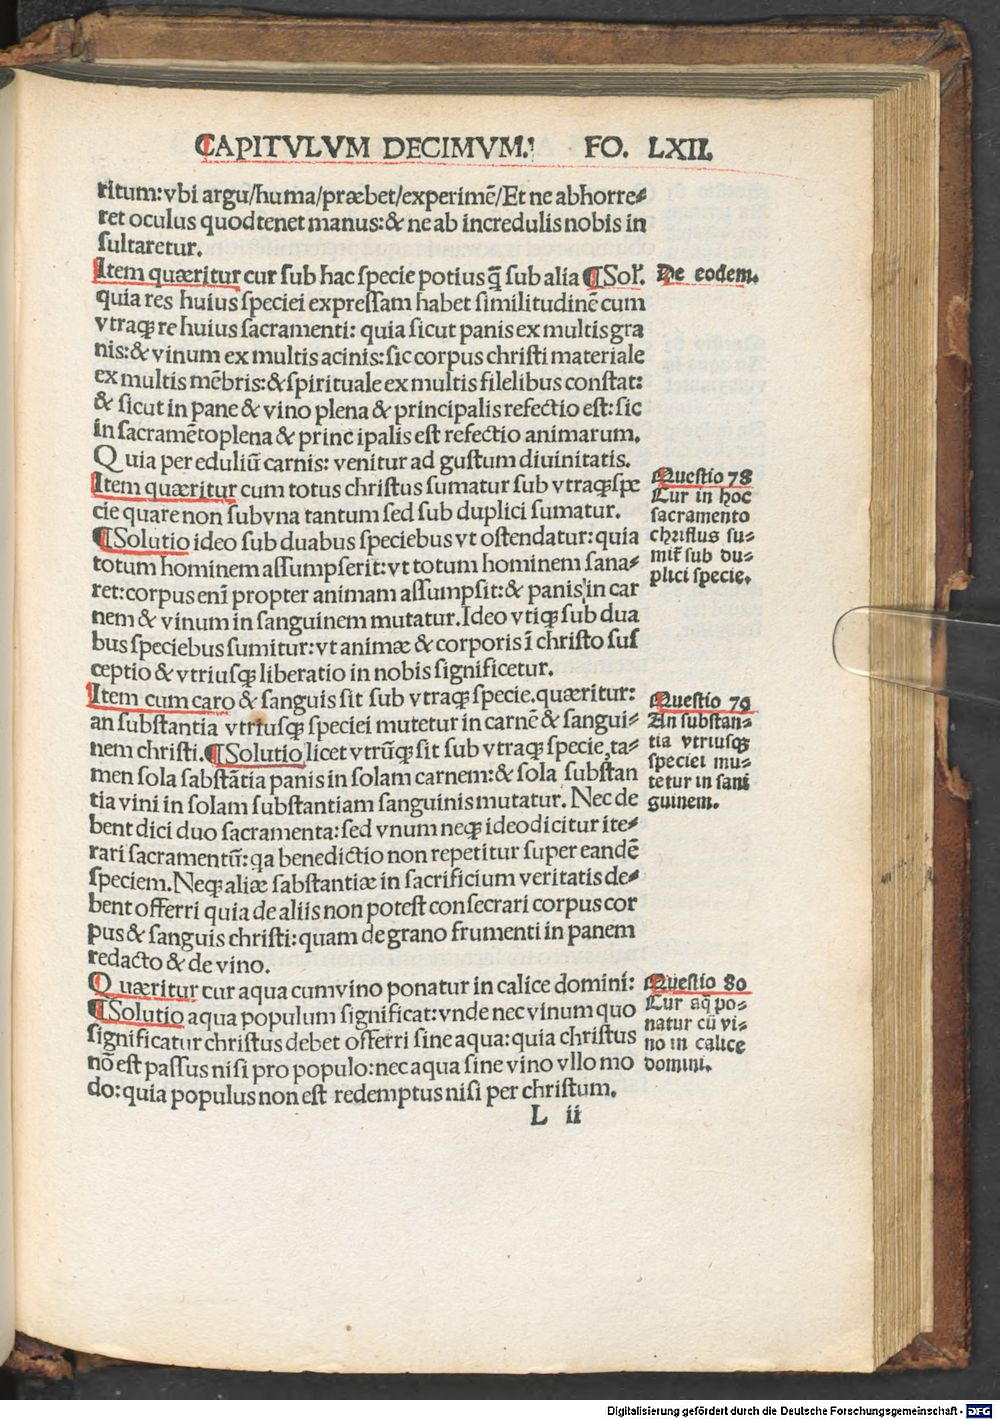 CAPITVLVM DECIMVM. FO. LXII.
ritum: vbi argu/huma/præbet/experimē/Et ne abhorre⸗
ret oculus quod tenet manus: & ne ab incredulis nobis in
sultaretur.
Item quæritur cur sub hac specie potius q̄ sub alia ¶ Sol'.
De eodem.
quia res huius speciei expressam habet similitudinē cum
vtraqꝫ re huius sacramenti: quia sicut panis ex multis gra
nis: & vinum ex multis acinis: sic corpus christi materiale
ex multis mēbris: & spirituale ex multis filelibus constat:
& sicut in pane & vino plena & principalis refectio est: sic
in sacramēto plena & princ ipalis est refectio animarum.
Q uia per eduliū carnis: venitur ad gustum diuinitatis.
Item quæritur cum totus christus sumatur sub vtraqꝫ spe
cie quare non sub vna tantum sed sub duplici sumatur.
¶ Solutio ideo sub duabus speciebus vt ostendatur: quia
totum hominem assumpserit: vt totum hominem sana⸗
ret: corpus enī propter animam assumpsit: & panis in car
nem & vinum in sanguinem mutatur. Ideo vtiqꝫ sub dua
bus speciebus sumitur: vt animæ & corporis ī christo sus
ceptio & vtriusqꝫ liberatio in nobis significetur.
Questio 78
Cur in hoc
sacramento
christus su⸗
mit̃ sub du⸗
plici specie.
Item cum caro & sanguis sit sub vtraqꝫ specie. quæritur:
an substantia vtriusqꝫ speciei mutetur in carnē & sangui⸗
nem christi. ¶ Solutio licet vtrūqꝫ sit sub vtraqꝫ specie, ta⸗
men sola sabstātia panis in solam carnem: & sola substan
tia vini in solam substantiam sanguinis mutatur. Nec de
bent dici duo sacramenta: sed vnum neqꝫ ideo dicitur ite⸗
rari sacramentū: qa benedictio non repetitur super eandē
speciem. Neqꝫ aliæ sabstantiæ in sacrificium veritatis de⸗
bent offerri quia de aliis non potest consecrari corpus cor
pus & sanguis christi: quam de grano frumenti in panem
redacto & de vino.
Questio 79
An substan⸗
tia vtriusqꝫ
speciei mu⸗
tetur in sani
guinem.
Q uæritur cur aqua cum vino ponatur in calice domini:
¶ Solutio aqua populum significat: vnde nec vinum quo
significatur christus debet offerri sine aqua: quia christus
nō est passus nisi pro populo: nec aqua sine vino vllo mo
do: quia populus non est redemptus nisi per christum.
Questio 80
Cur aq̄ po⸗
natur cū vi⸗
no in calice
domini.
L ii
Digitalisierung gefördert durch die Deutsche Forschungsgemeinschaft - DFG